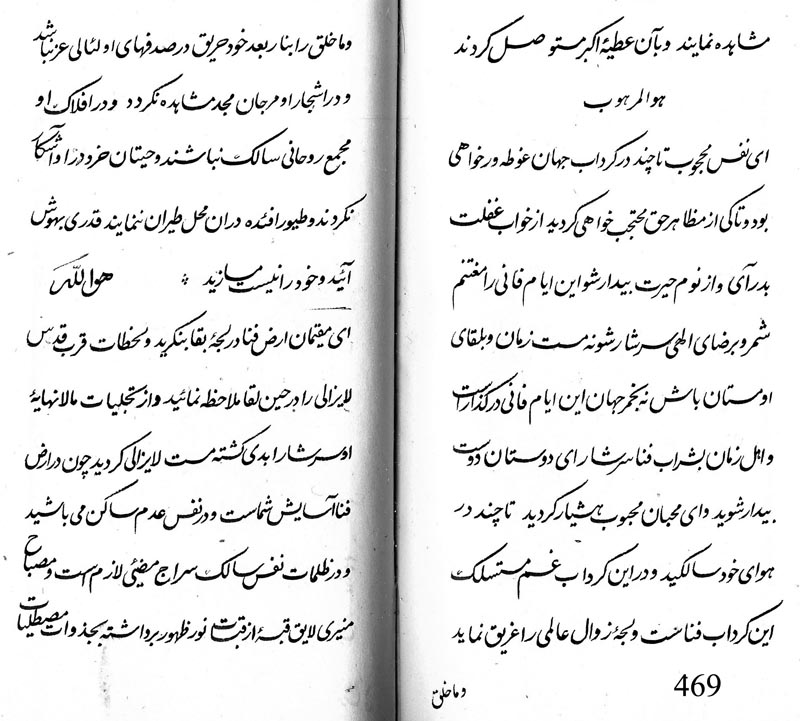 مشاهده نمایند و بآن عطیهٔ اکبر متوصل کردند
هوالمرهوب
ای نفس محجوب تا چند در کرداب جهان غوطه ور خواهی
بود و تا کی از مظاهر حق محتجب خواهی کردید از خواب غفلت
بدر آی و از نوم حیرت بیدار شو این ایام فانی را مغتنم
شمر و برضای الهی سرشار شو نه مست زمان و بلقای
او مستان باش نه بخمر جهان این ایام فانی در کذار است
و اهل زمان بشراب فنا سرشار ای دوستان دوست
بیدار شوید و ای محبان محبوب هشیار کردید تا چند در
هوای خود سالکید و در این کرداب غم مستسلک
این کرداب فناست و لجهٔ زوال عالمی را غریق نماید
وما خلق
469
وما خلق را بنار بعد خود حریق در صدفهای او لئالی عز نباشد
و در اشجار او مرجان مجد مشاهده نکردد و در افلاک او
مجمع روحانی سالک نباشند و حیتان خرد در او آشکار
نکردند و طیور افئده در ان محل طیران ننمایند قدری بهوش
آئید و خود را نیست مسازید * هوالله
ای مقیمان ارض فنا در لجهٔ بقا بنکرید و لحظات قرب قدس
لایزالی را در حین لقا ملاحظه نمائید و از تجلیات مالانهایهٔ
او سرشار ابدی کشته مست لایزالی کردید چون در ارض
فنا آسایش شماست و در نفس عدم ساکن می باشید
و در ظلمات نفس سالک سراج مضیئی لازم است و مصباح
منیری لایق قبهٔ از قبات نور ظهور برداشته بجذوات مصطلیات